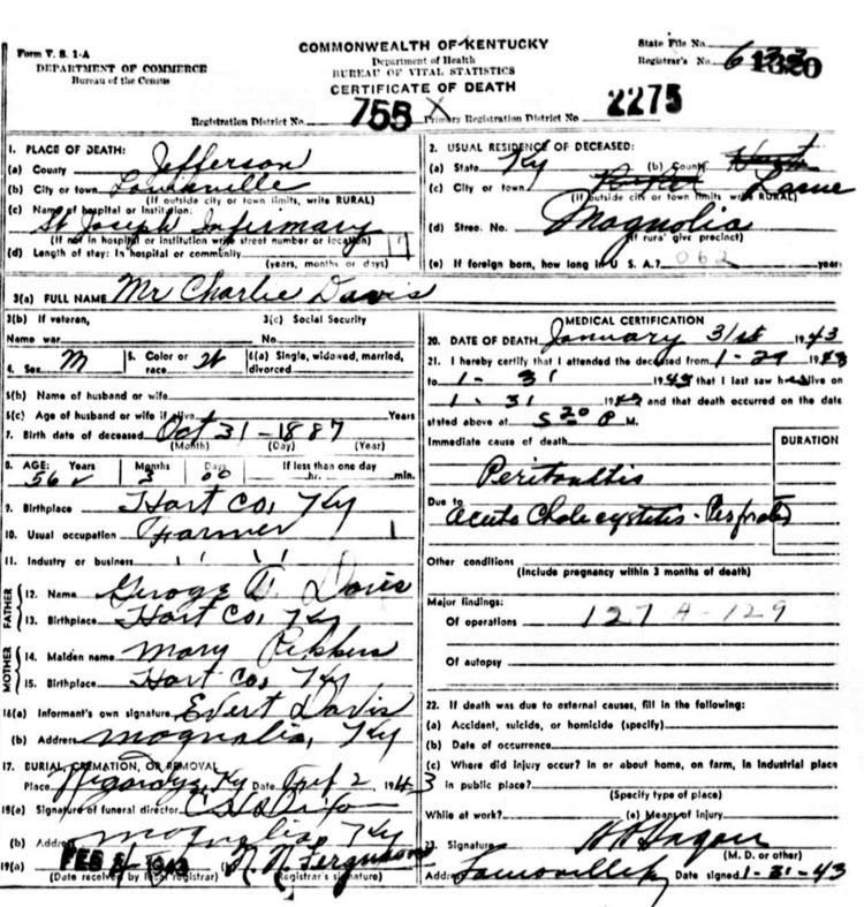 Form V. S. 1-A
DEPARTMENT OF COMMERCE
Bureau of the Census
COMMONWEALTH OF KENTUCKY
Department of Health
BUREAU OF VITAL STATISTICS
CERTIFICATE OF DEATH
State File No.
Registrar's No.
Registration District No. 755 X Primary Registration District No. 2275
1. PLACE OF DEATH:
(a) County Jefferson
(b) City or town Louisville
(If outside city or town limits, write RURAL)
(c) Name of hospital or institution:
St Joseph Infirmary
(If not in hospital or institution write street number or location)
(d) Length of stay: In hospital or community
(years, months or days)
2. USUAL RESIDENCE OF DECEASED:
(a) State Ky (b) County
(c) City or town Larue
(If outside city or town limits, write RURAL)
(d) Street No. Magnolia
(If rural give precinct)
(e) If foreign born, how long in U. S. A.? 062 years
3(a) FULL NAME Mr Charlie Davis
3(b) If veteran,
Name war
3(c) Social Security
No.
4. Sex M
5. Color or race W
6(a) Single, widowed, married, divorced
6(b) Name of husband or wife
6(c) Age of husband or wife if alive Years
7. Birth date of deceased Oct 31 - 1887
(Month) (Day) (Year)
8. AGE: Years Months Days If less than one day
56 3 00 hr. min.
9. Birthplace Hart Co, Ky
10. Usual occupation Farmer
11. Industry or business
FATHER
12. Name Geroge Davis
13. Birthplace Hart Co, Ky
MOTHER
14. Maiden name Mary
15. Birthplace Hart Co, Ky
16(a) Informant's own signature Evert Davis
(b) Address Magnolia, Ky
17. BURIAL, CREMATION, OR REMOVAL
Place Ky Date Feb 2, 1943
18(a) Signature of funeral director
(b) Address Magnolia, Ky
19(a) FEB 1943 (b) N Ferguson
(Date received by local registrar) (Registrar's signature)
MEDICAL CERTIFICATION
20. DATE OF DEATH January 31st 1943
21. I hereby certify that I attended the deceased from 1-29 1943
to 1-31 1943 that I last saw h alive on
1-31 1943 and that death occurred on the date
stated above at 5 20 P M.
Immediate cause of death
DURATION
Peritonitis
Due to
Acute Cholecystitis - Perforated
Other conditions
(Include pregnancy within 3 months of death)
Major findings:
Of operations 127 A-129
Of autopsy
22. If death was due to external causes, fill in the following:
(a) Accident, suicide, or homicide (specify)
(b) Date of occurrence
(c) Where did injury occur? In or about home, on farm, in industrial place
in public place?
(Specify type of place)
While at work? (e) Means of injury
23. Signature
(M. D. or other)
Address Louisville Ky Date signed 1-31-43